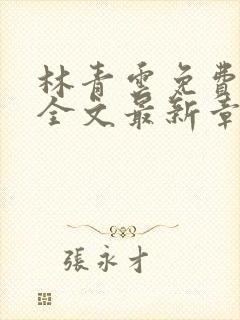 林青雲免費
全文最新章
張永才